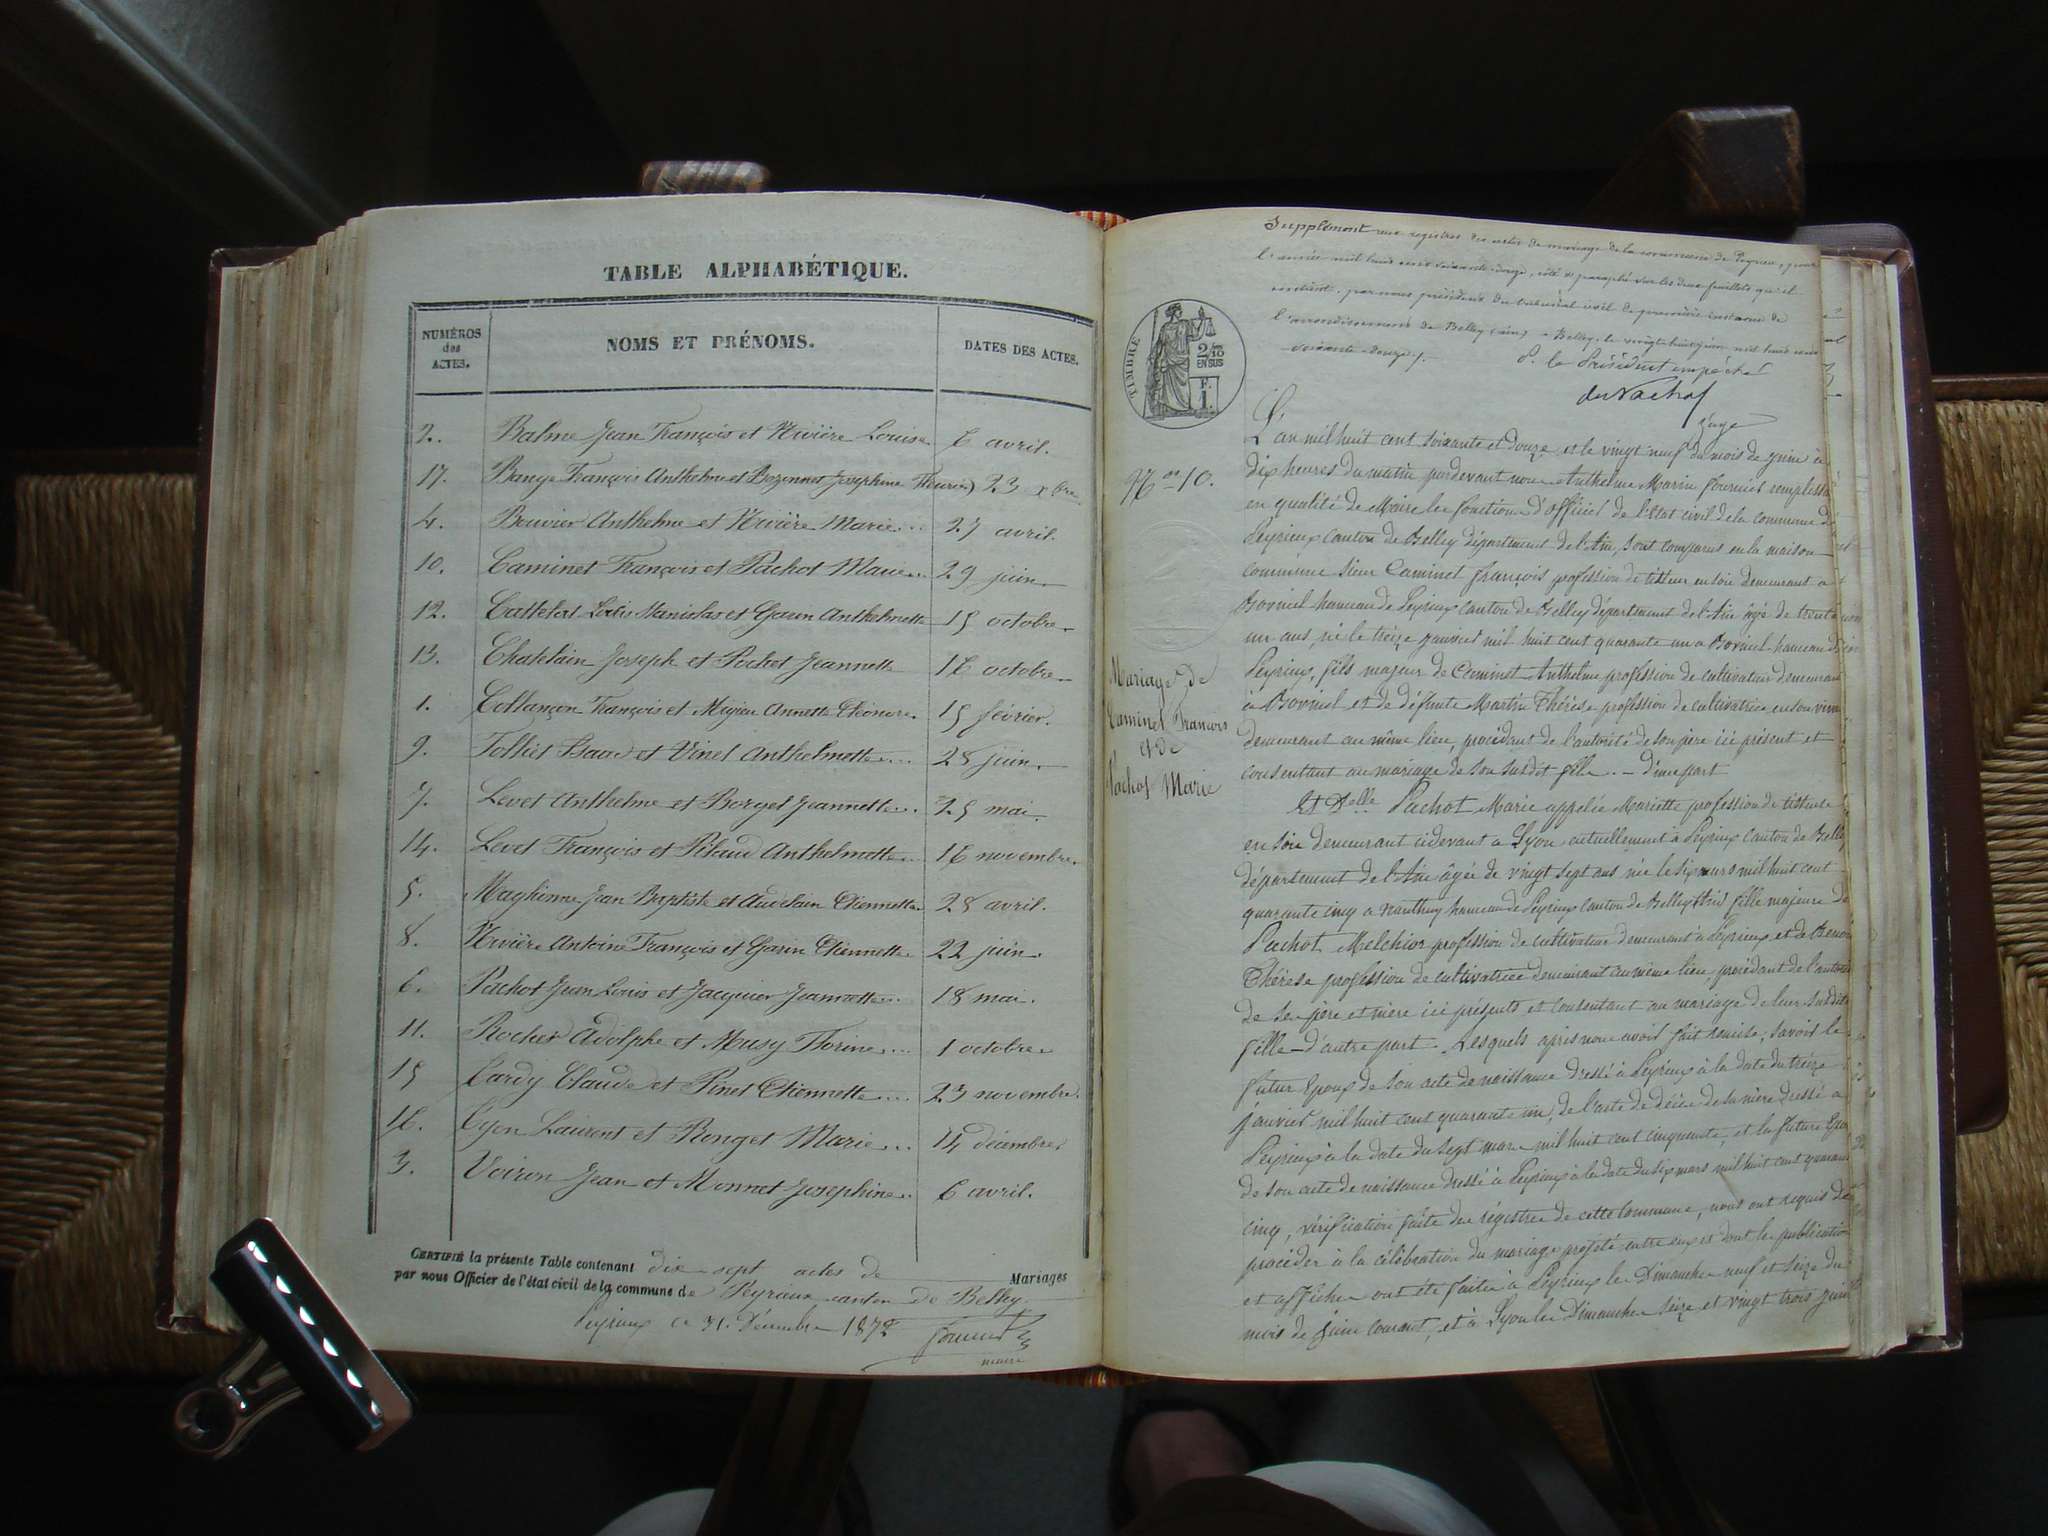 TABLE ALPHABÉTIQUE.
NUMÉROS des ACTES. NOMS ET PRÉNOMS. DATES DES ACTES.
2. Balme Jean François et Rivière Louise 6 avril.
17. François Anthelme et Josephine 23 xbre
4. Bouvier Anthelme et Rivière Marie... 27 avril.
10. Caminet François et Pachot Marie... 29 juin.
12. Louis Stanislas et Garin Anthelmette 15 octobre.
13. Chatelain Joseph et Pochet Jeannette 16 octobre.
1. François et Annette 15 février.
9. et Vinet Anthelmette... 28 juin.
7. Levet Anthelme et Borget Jeannette. 25 mai.
14. Levet François et Pilaud Anthelmette.. 16 novembre.
5. Jean Baptiste et Etiennette. 28 avril.
8. Rivière Antoine François et Garin Etiennette. 22 juin.
6. Pachot Jean Louis et Jacquier Jeannette.. 18 mai.
11. Rocher Adolphe et Musy... 1 octobre.
15 Tardy Claude et Pinet Etiennette... 23 novembre.
16. Laurent et Marie... 14 décembre.
3. Voiron Jean et Monnet Josephine.. 6 avril.
CERTIFIÉ la présente Table contenant dix sept actes de Mariages
par nous Officier de l'état civil de la commune de Peyrieux canton de Belley.
Peyrieux ce 31. Décembre 1872 Fournier
maire
Supplément aux registres des actes de mariage de la commune de Peyrieux, pour
l'année mil huit cent soixante-douze, coté et paraphé sur les deux feuillets qu'il
contient, par nous président du tribunal civil de première instance de
l'arrondissement de Belley (ain) - Belley, le vingt huit juin mil huit cent
soixante-douze /.
P. le Président empêché
juge
TIMBRE
2/10
EN SUS
F.
1.
L'an mil huit cent soixante et douze et le vingt neuf du mois de juin à
dix heures du matin pardevant nous Anthelme Marin Fournier
en qualité de Maire les fonctions d'officier de l'état civil de la commune de
Peyrieux canton de Belley département de l'Ain, sont comparus en la maison
commune sieur Caminet François profession de tisseur en soie demeurant a
hameau de Peyrieux canton de Belley département de l'Ain âgé de trente
un ans, né le treize janvier mil huit cent quarante un a hameau de
Peyrieux, fils majeur de Caminet Anthelme profession de cultivateur demeurant
à et de défunte Martin Thérèse profession de cultivatrice en son vivant
demeurant au même lieu, procédant de l'autorité de son père ici présent et
consentant au mariage de son susdit fils. - d'une part
Et Delle Pachot Marie appelée Mariette profession de tisseuse
en soie demeurant cidevant a Lyon actuellement à Peyrieux canton de Belley
département de l'Ain âgée de vingt sept ans née le six mars mil huit cent
quarante cinq a hameau de Peyrieux canton de Belley fille majeure de
Pachot Melchior profession de cultivateur demeurant à Peyrieux et de
Thérèse profession de cultivatrice demeurant au même lieu, procédant de l'autorité
de ses père et mère ici présents et consentant au mariage de leur susdite
fille - d'autre part. Lesquels après nous avoir fait remise, savoir le
futur Epoux de son acte de naissance dressé à Peyrieux à la date du treize
janvier mil huit cent quarante un, de l'acte de décès de sa mère dressé a
Peyrieux à la date du sept mars mil huit cent cinquante, et la future Epouse
de son acte de naissance dressé à Peyrieux à la date du six mars mil huit cent quarante
cinq, vérification faite des régistres de cette Commune, nous ont requis de
procéder à la célébration du mariage projeté entre eux et dont les publications
et affiches ont été faites à Peyrieux les Dimanches neuf et seize du
mois de juin courant, et à Lyon les Dimanches seize et vingt trois juin
N° 10.
Mariage de
Caminet François
et de
Pachot Marie